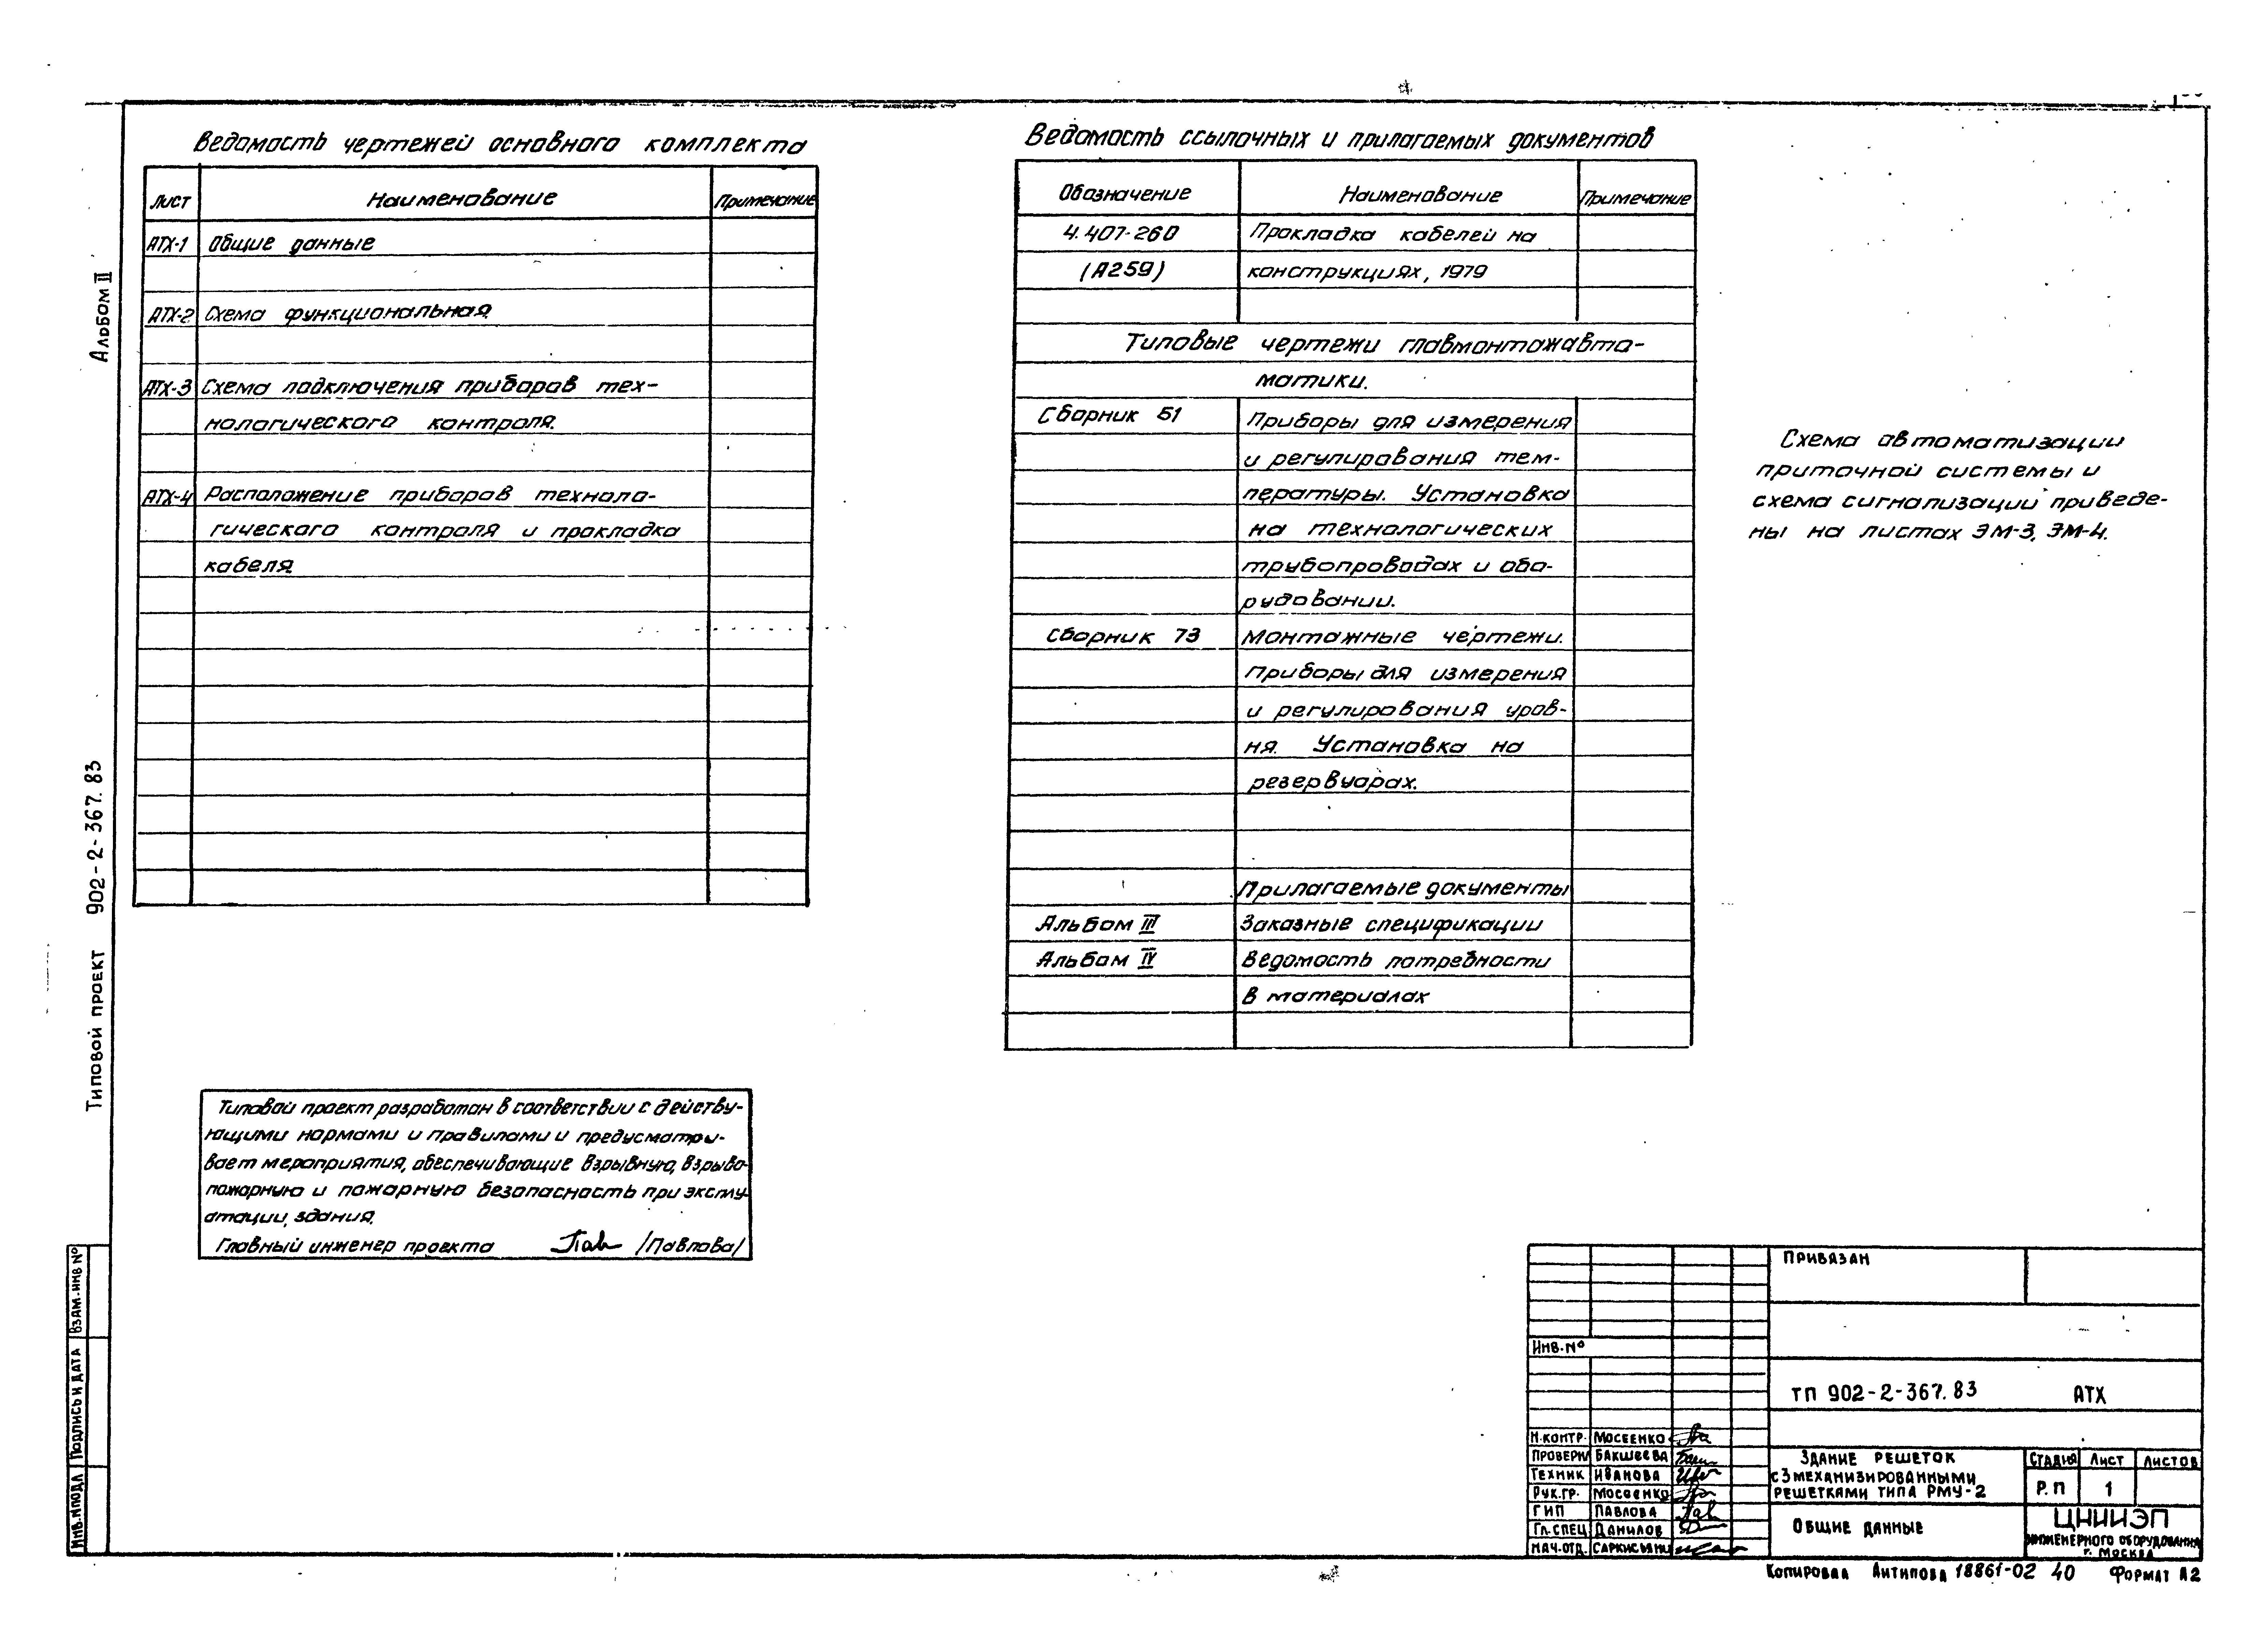 Ведомость чертежей основного комплекта
Лист Наименование Примечание
АТХ-1 Общие данные
АТХ-2 Схема функциональная.
АТХ-3 Схема подключения приборов тех-
нологического контроля.
АТХ-4 Расположение приборов техноло-
гического контроля и прокладка
кабеля.
Ведомость ссылочных и прилагаемых документов
Обозначение Наименование Примечание
4.407-260 Прокладка кабелей на
(А259) конструкциях, 1979
Типовые чертежи главмонтажавто-
матики.
Сборник 51 Приборы для измерения
и регулирования тем-
пературы. Установка
на технологических
трубопроводах и обо-
рудовании.
Сборник 73 Монтажные чертежи.
Приборы для измерения
и регулирования уров-
ня. Установка на
резервуарах.
Прилагаемые документы
Альбом III Заказные спецификации
Альбом IV Ведомость потребности
в материалах
Схема автоматизации
приточной системы и
схема сигнализации приведе-
ны на листах ЭМ-3, ЭМ-4.
Типовой проект разработан в соответствии с действу-
ющими нормами и правилами и предусматри-
вает мероприятия, обеспечивающие взрывную, взрыво-
пожарную и пожарную безопасность при эксплу-
атации здания.
Главный инженер проекта Пав /Павлова/
Альбом II
Типовой проект 902-2-367.83
Взам.инв №
Подпись и дата
Инв.№подл
Привязан
Инв.№
ТП 902-2-367.83 АТХ
Н.контр. Мосеенко
Проверил Бакшеева
Техник Иванова
Рук.гр. Мосеенко
ГИП Павлова
Гл.спец Данилов
Нач.отд.
Здание решеток
с 3 механизированными
решетками типа РМУ-2
Стадия Лист Листов
Р.П 1
Общие данные
ЦНИИЭП
инженерного оборудования
г. Москва
Копировал Антипова 18861-02 40 Формат А2